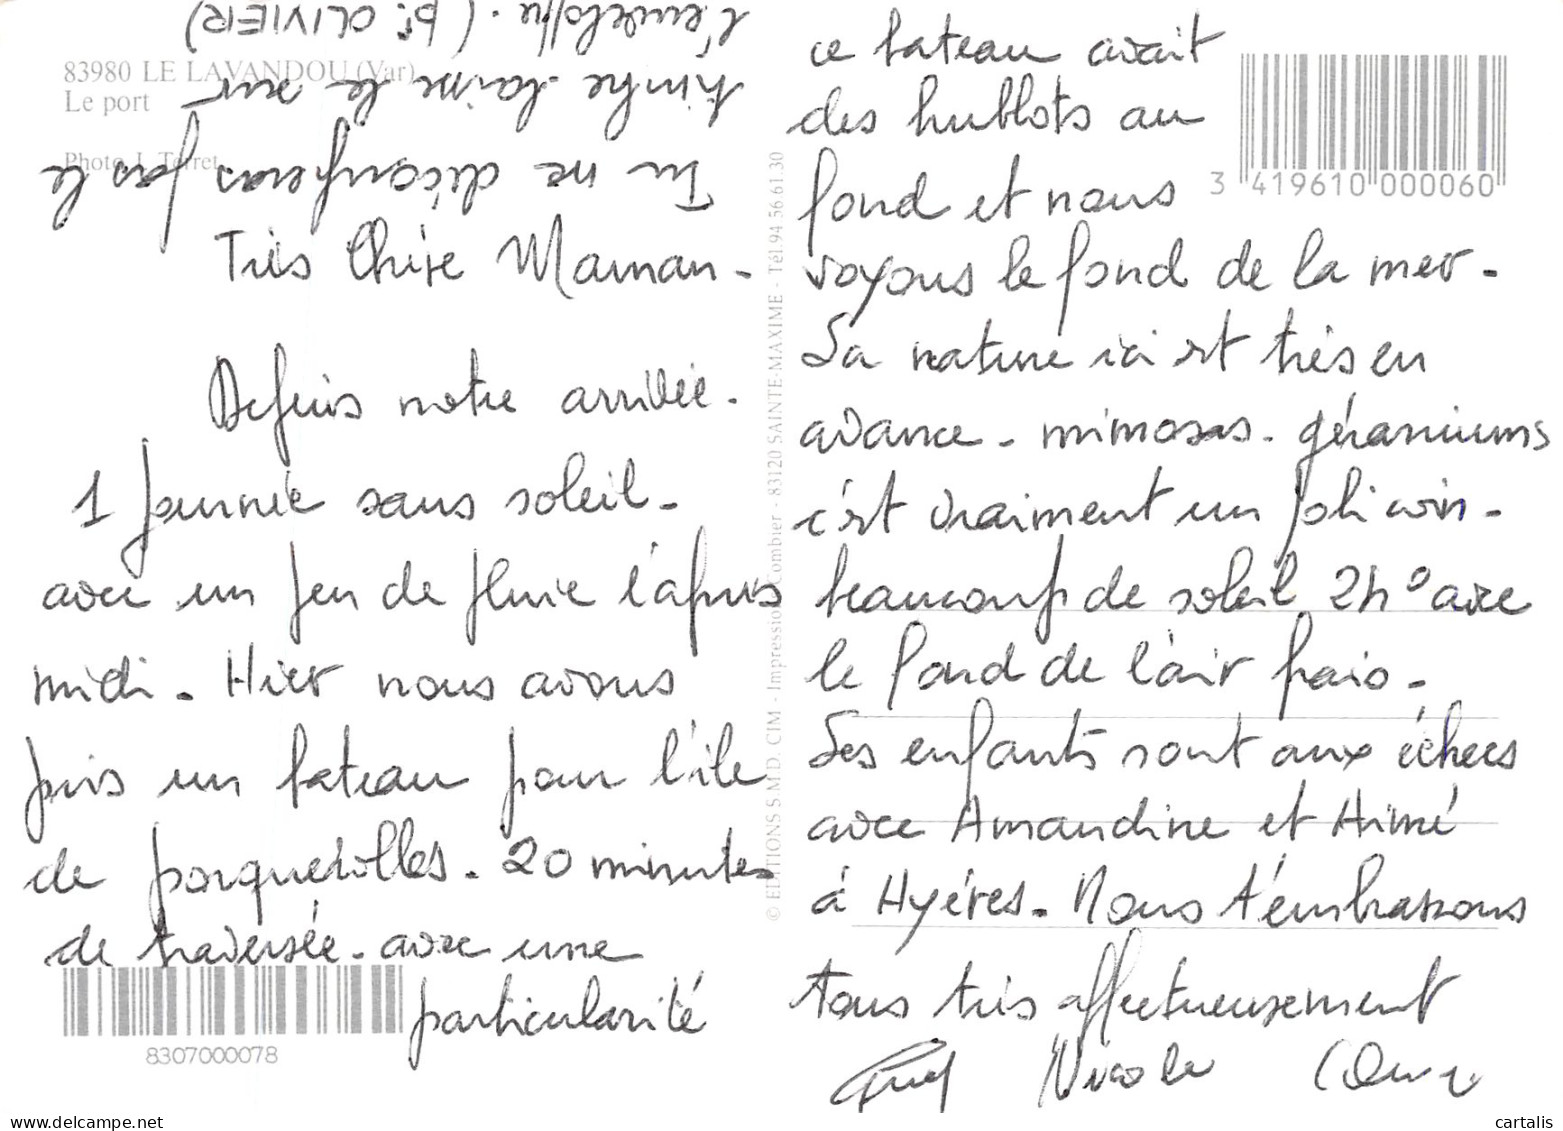 83980 LE LAVANDOU (Var)
Le port
Photo J. Terret
Tu ne découperas pas le
timbre laisse le sur
l'enveloppe. (pr OLIVIER)
Très Chère Maman -
Depuis notre arrivée.
1 journée sans soleil -
avec un peu de pluie l'après
midi - Hier nous avons
pris un bateau pour l'île
de porquerolles - 20 minutes
de traversée - avec une
particularité
8307000078
© EDITIONS S.M.D. CIM - Impression Combier - 83120 SAINTE-MAXIME - Tél. 94 56 61 30
3 419610 000060
ce bateau avait
des hublots au
fond et nous
voyons le fond de la mer -
La nature ici est très en
avance - mimosas - géraniums
c'est vraiment un joli coin -
beaucoup de soleil avec
le fond de l'air frais -
Les enfants sont aux échecs
avec Amandine et Aimé
à Hyères - Nous t'embrassons
tous très affectueusement
Nicole
cartalis
www.delcampe.net